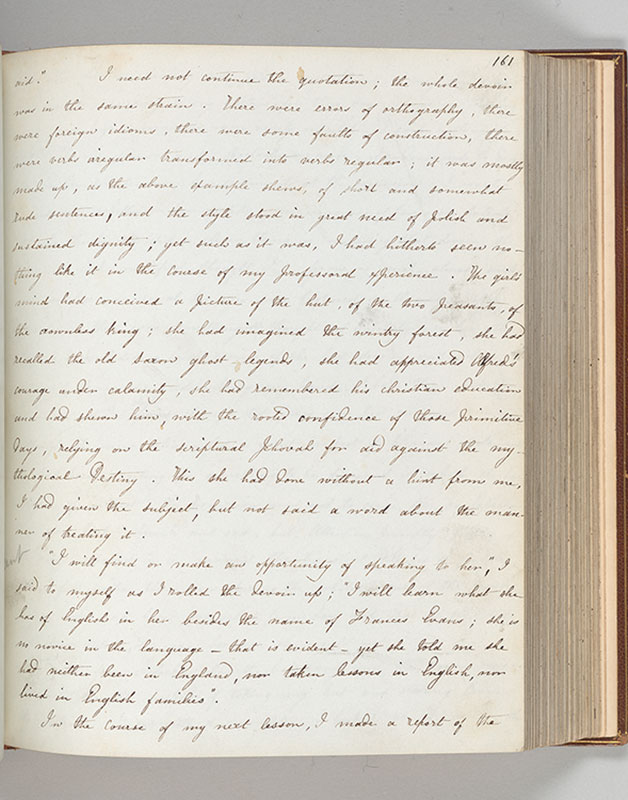 161
aid." I need not continue the quotation; the whole devoir
was in the same strain. There were errors of orthography, there
were foreign idioms, there were some faults of construction, there
were verbs irregular transformed into verbs regular; it was mostly
made up, as the above example shews, of short and somewhat
rude sentences, and the style stood in great need of polish and
sustained dignity; yet such as it was, I had hitherto seen no-
thing like it in the course of my professoral experience. The girl's
mind had conceived a picture of the hut, of the two peasants, of
the crownless king; she had imagined the wintry forest, she had
recalled the old Saxon ghost legends, she had appreciated Alfred's
courage under calamity, she had remembered his christian education
and had shewn him, with the rooted confidence of those primitive
days, relying on the scriptural Jehovah for aid against the my-
thological Destiny. This she had done without a hint from me,
I had given the subject, but not said a word about the man-
ner of treating it.
"I will find or make an opportunity of speaking to her", I
said to myself as I rolled the devoir up; "I will learn what she
has of English in her besides the name of Frances Evans; she is
no novice in the language - that is evident - yet she told me she
had neither been in England, nor taken lessons in English, nor
lived in English families".
In the course of my next lesson, I made a report of the